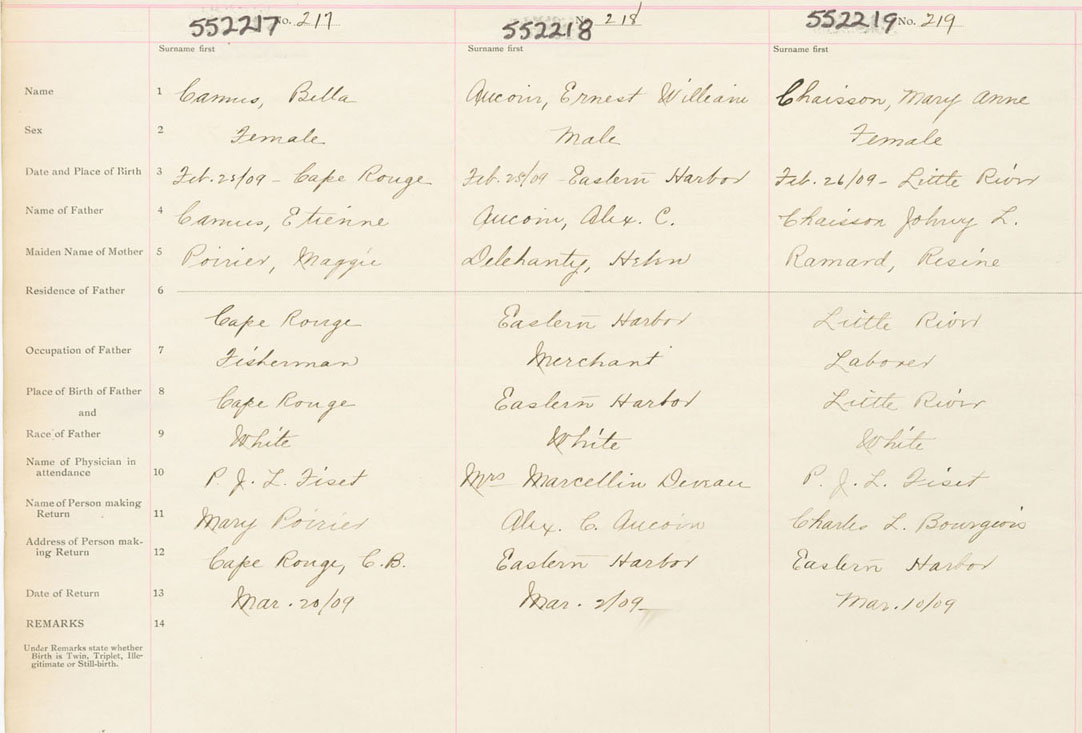 552217 No. 217 552218 No. 218 552219 No. 219
Surname first Surname first Surname first
Name 1 Camus, Bella Aucoin, Ernest William Chaisson, Mary Anne
Sex 2 Female Male Female
Date and Place of Birth 3 Feb. 25/09 - Cape Rouge Feb. 25/09 - Eastern Harbor Feb. 26/09 - Little River
Name of Father 4 Camus, Etienne Aucoin, Alex. C. Chaisson Johny L.
Maiden Name of Mother 5 Poirier, Maggie Delehanty, Helen Ramard, Resine
Residence of Father 6
Cape Rouge Eastern Harbor Little River
Occupation of Father 7 Fisherman Merchant Laborer
Place of Birth of Father 8 Cape Rouge Eastern Harbor Little River
and
Race of Father 9 White White White
Name of Physician in
attendance 10 P. J. L. Fiset Mrs Marcellin Deveau P. J. L. Fiset
Name of Person making
Return 11 Mary Poirier Alex. C. Aucoin Charles L. Bourgeois
Address of Person mak-
ing Return 12 Cape Rouge, C.B. Eastern Harbor Eastern Harbor
Date of Return 13 Mar. 20/09 Mar. 2/09 Mar. 10/09
REMARKS 14
Under Remarks state whether
Birth is Twin, Triplet, Ille-
gitimate or Still-birth.